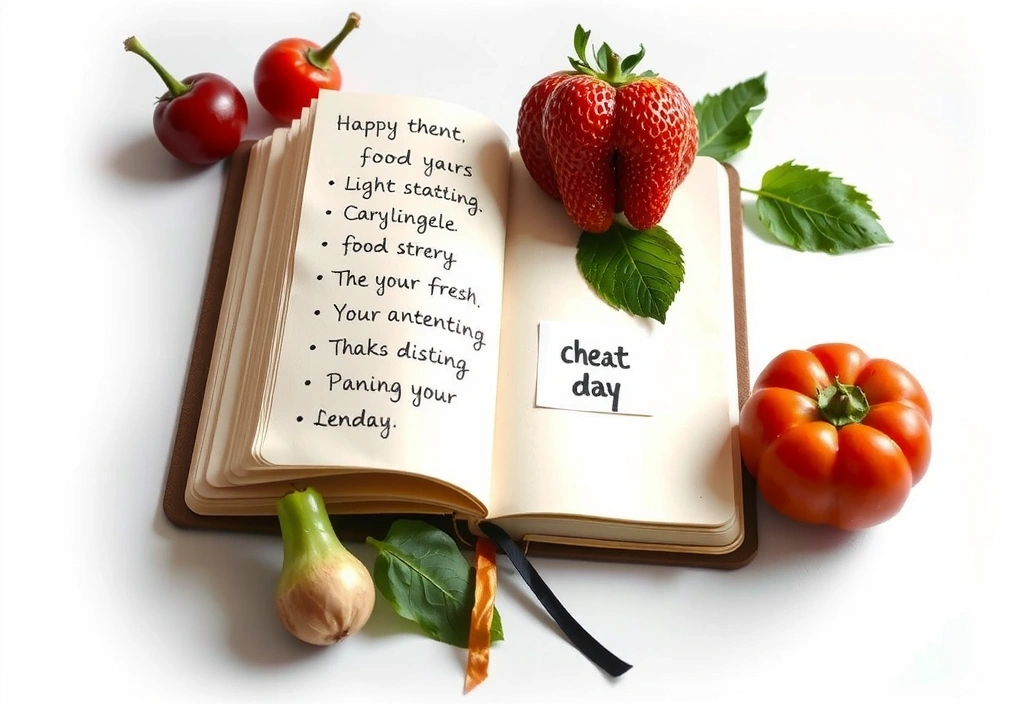 Happy thent,
food yaurs
• Light statting.
• Carylingele.
• food strery
• The your fresh.
• Your antenting
• Thaks disting
• Paning your
• Lenday.
cheat
day